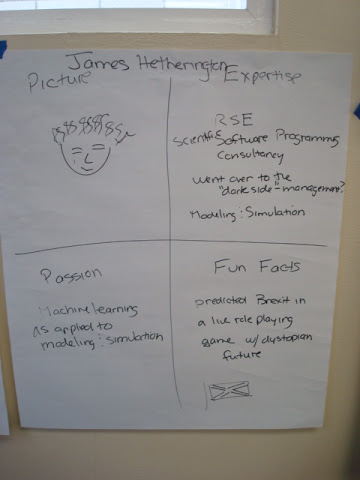 James Hetherington
Picture
Expertise
RSE
Scientific Software Programming
Consultancy
went over to the
"dark side"-management?
Modeling : Simulation
Passion
Machine learning
as applied to
modeling : simulation
Fun Facts
predicted Brexit in
a live role playing
game w/dystopian
future